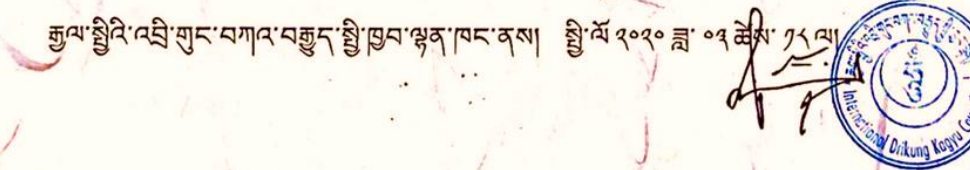 རྒྱལ་སྤྱིའི་འབྲི་གུང་བཀའ་བརྒྱུད་སྤྱི་ཁྱབ་ལྷན་ཁང་ནས།   སྤྱི་ལོ་༢༠༢༠ ཟླ་ ༠༣ ཚེས་ ༡༨ ལ།
International Drikung Kagyu